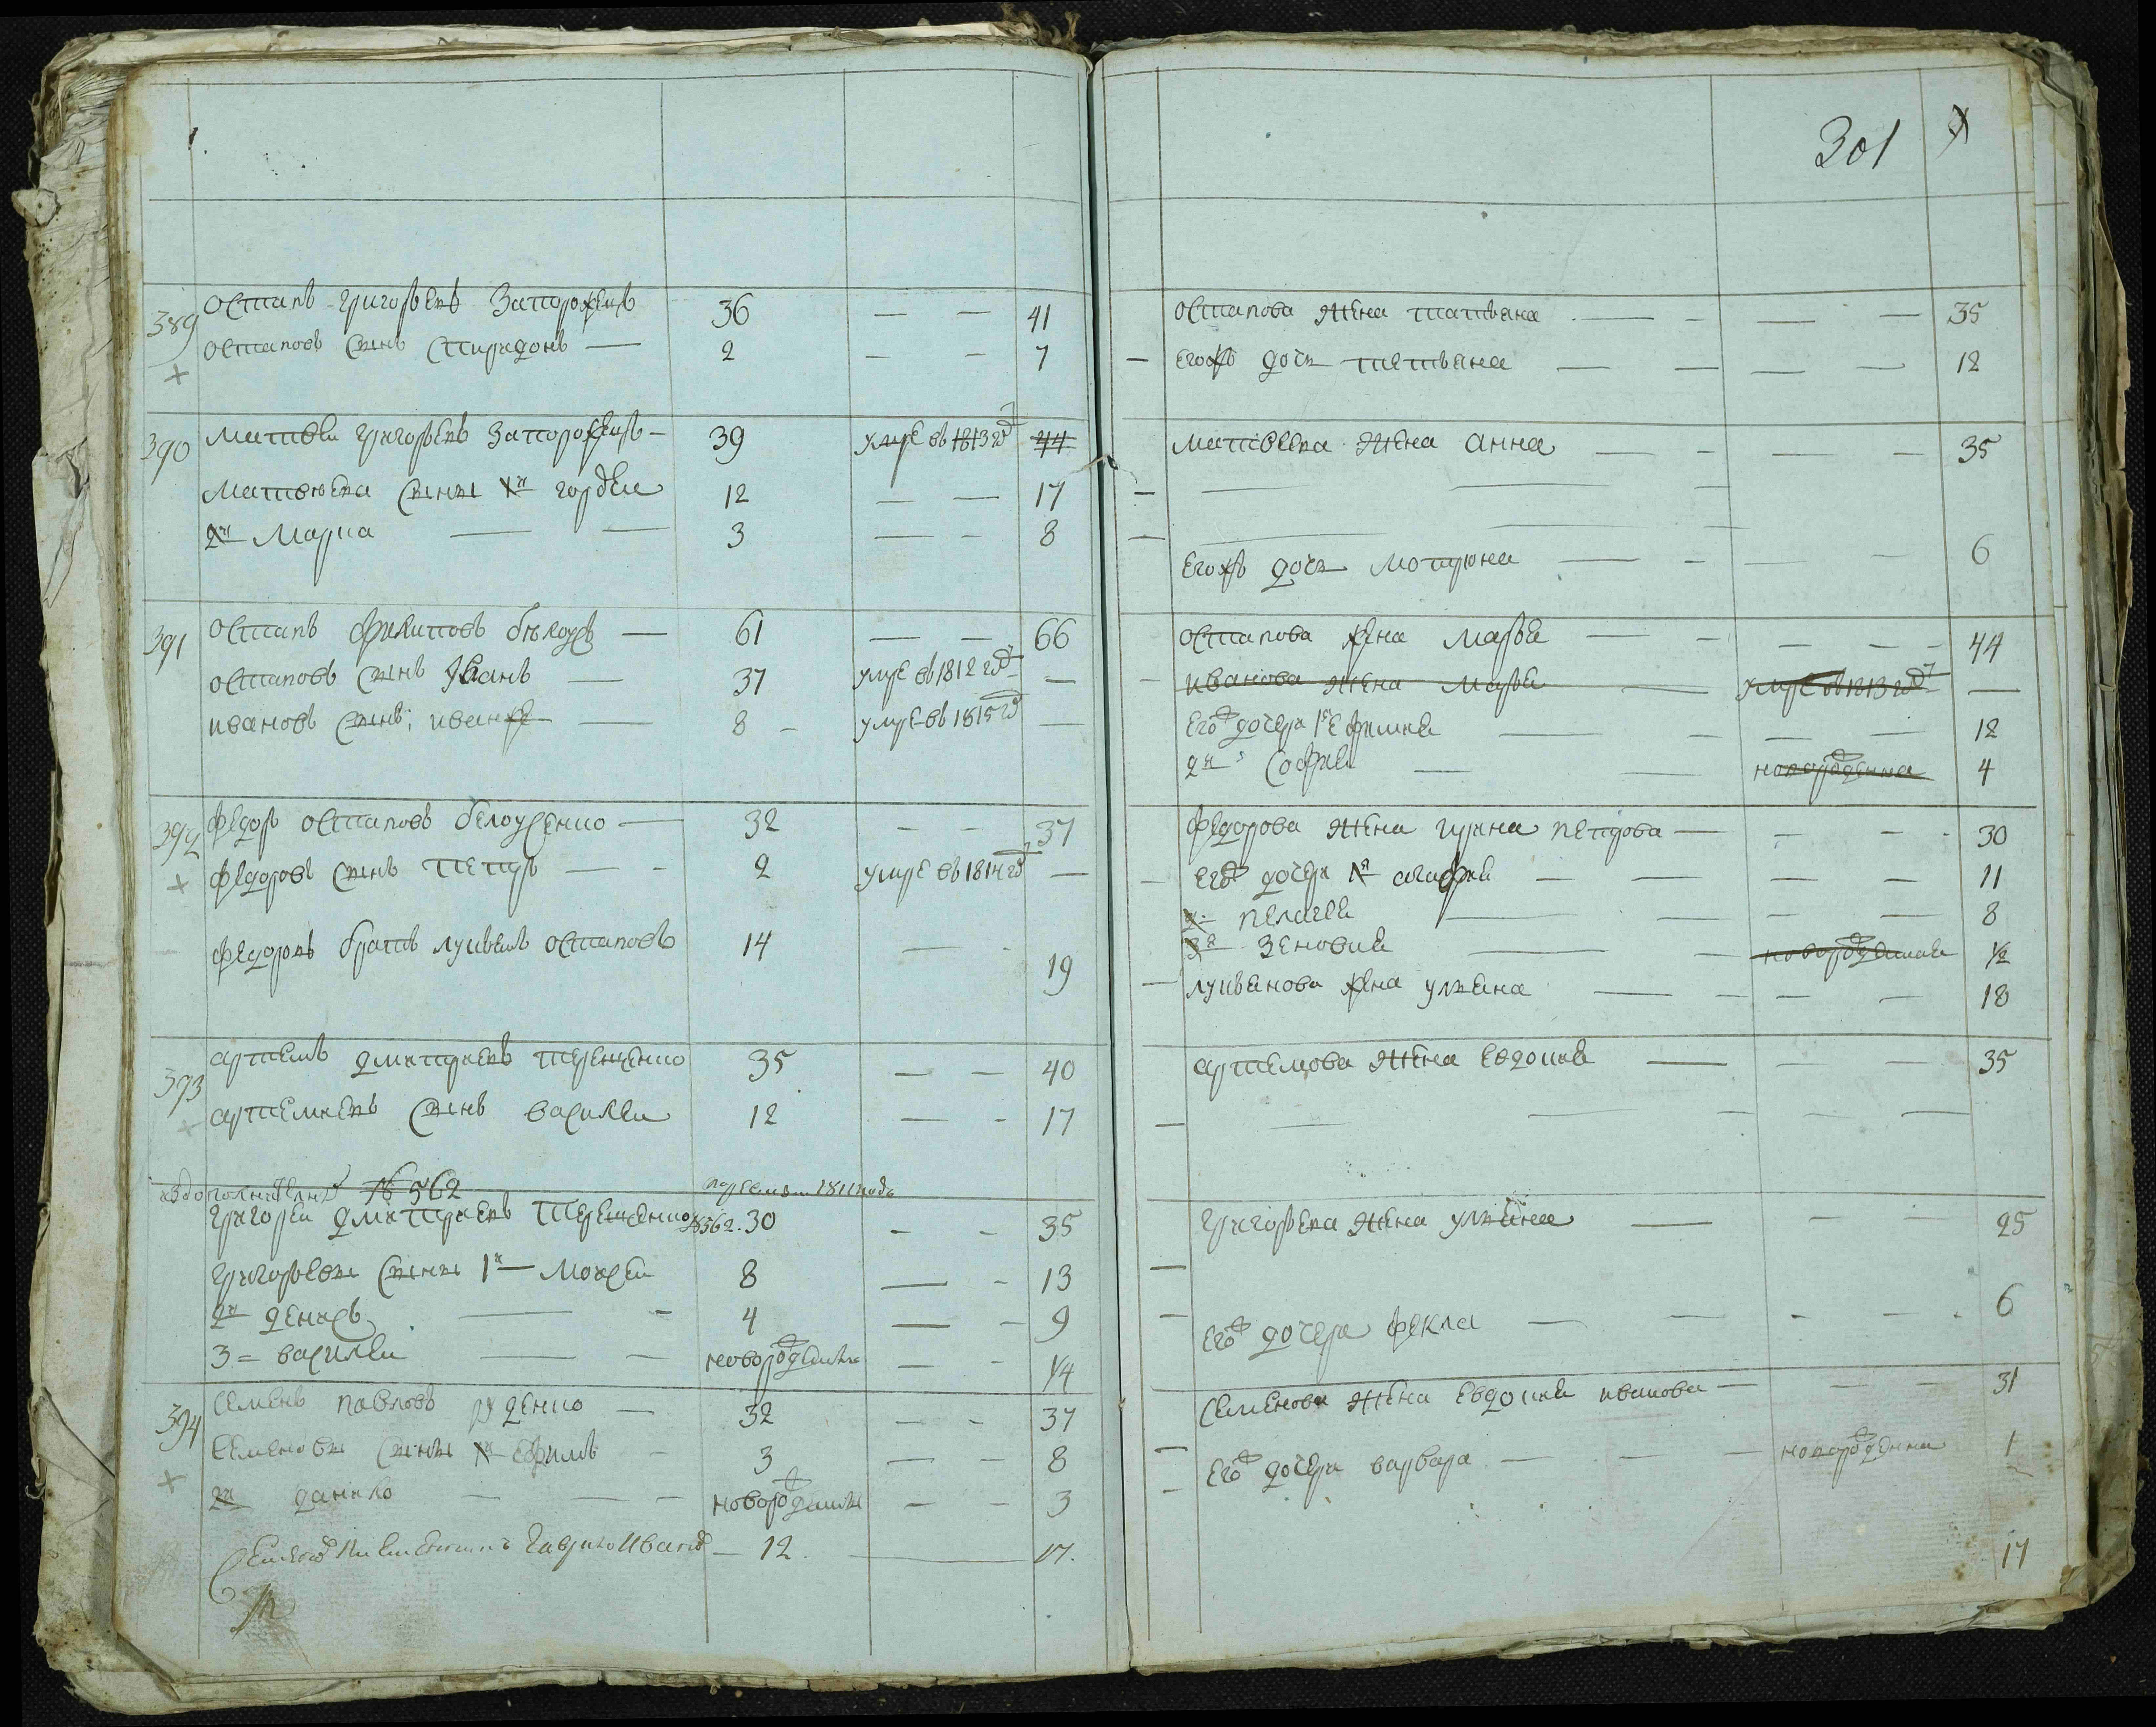 301
389 Остапъ Григорьевъ Запорожецъ 36 — — 41
Остаповъ сынъ Спиридонъ — 2 — — 7
390 Матвей Григорьевъ Запорожецъ — 39 умре въ 1813 год 44
Матвеева сыны 1й Гордей 12 — — 17
2й Марка — — 3 — — 8
391 Остапъ Филиповъ — 61 — — 66
Остаповъ сынъ Иванъ — 37 умре въ 1812 год —
Ивановъ сынъ; — 8 — умре въ 1815 год —
392 Федоръ Остаповъ Белоусенко — 32 — — 37
Федоровъ сынъ Петръ — — 2 умре въ 1814 год —
Федоровъ братъ Лукьянъ Остаповъ 14 — - 19
393 Артемъ Дмитриевъ Терещенко 35 — — 40
Артемиевъ сынъ Василей 12 — - 17
№ 562
Григорей Дмитриевъ Терещенко №562. 30 - - 35
Григорьевы сыны 1й — Моисей 8 — - 13
2й Денисъ — - 4 — — 9
3 = Василей — — новорожденны — - 1/4
394 Семенъ Павловъ Руденко — 32 - - 37
Семеновы сыны 1й Ефимъ - 3 — — 8
2й Данило — — — новорожденны — — 3
Гаврило Иванов — 12. — 17.
Остапова жена Татьяна — - — — 35
— Егожъ дочь Татьяна — — — — 12
Матвеева жена Анна — - — - 35
— — — —
— — — —
Егожъ дочь Мотрона — - — - 6
Остапова жена Марья — - - - - 44
- Иванова жена Марья — умре въ 1813 год —
Егож дочери 1я Ефимия — - — — 12
2я София — — новорожденна 4
Федорова жена Ирина Петрова — - - - 30
— Егож дочери 1я Агафия — — — — 11
2. Пелагея — — — — 8
3я Зеновия — — новорожденная 1/2
— Лукьянова жена Ульяна — - - — 18
Артемова жена Евдокия — — 35
— — — — — —
Григорьева жена Ульяна — - - 25
—
- Егож дочера Фекла — — - - . 6
Семенова жена Евдокия Иванова — — - 31
— Егож дочери Варвара — — — новорожденна 1
-
17